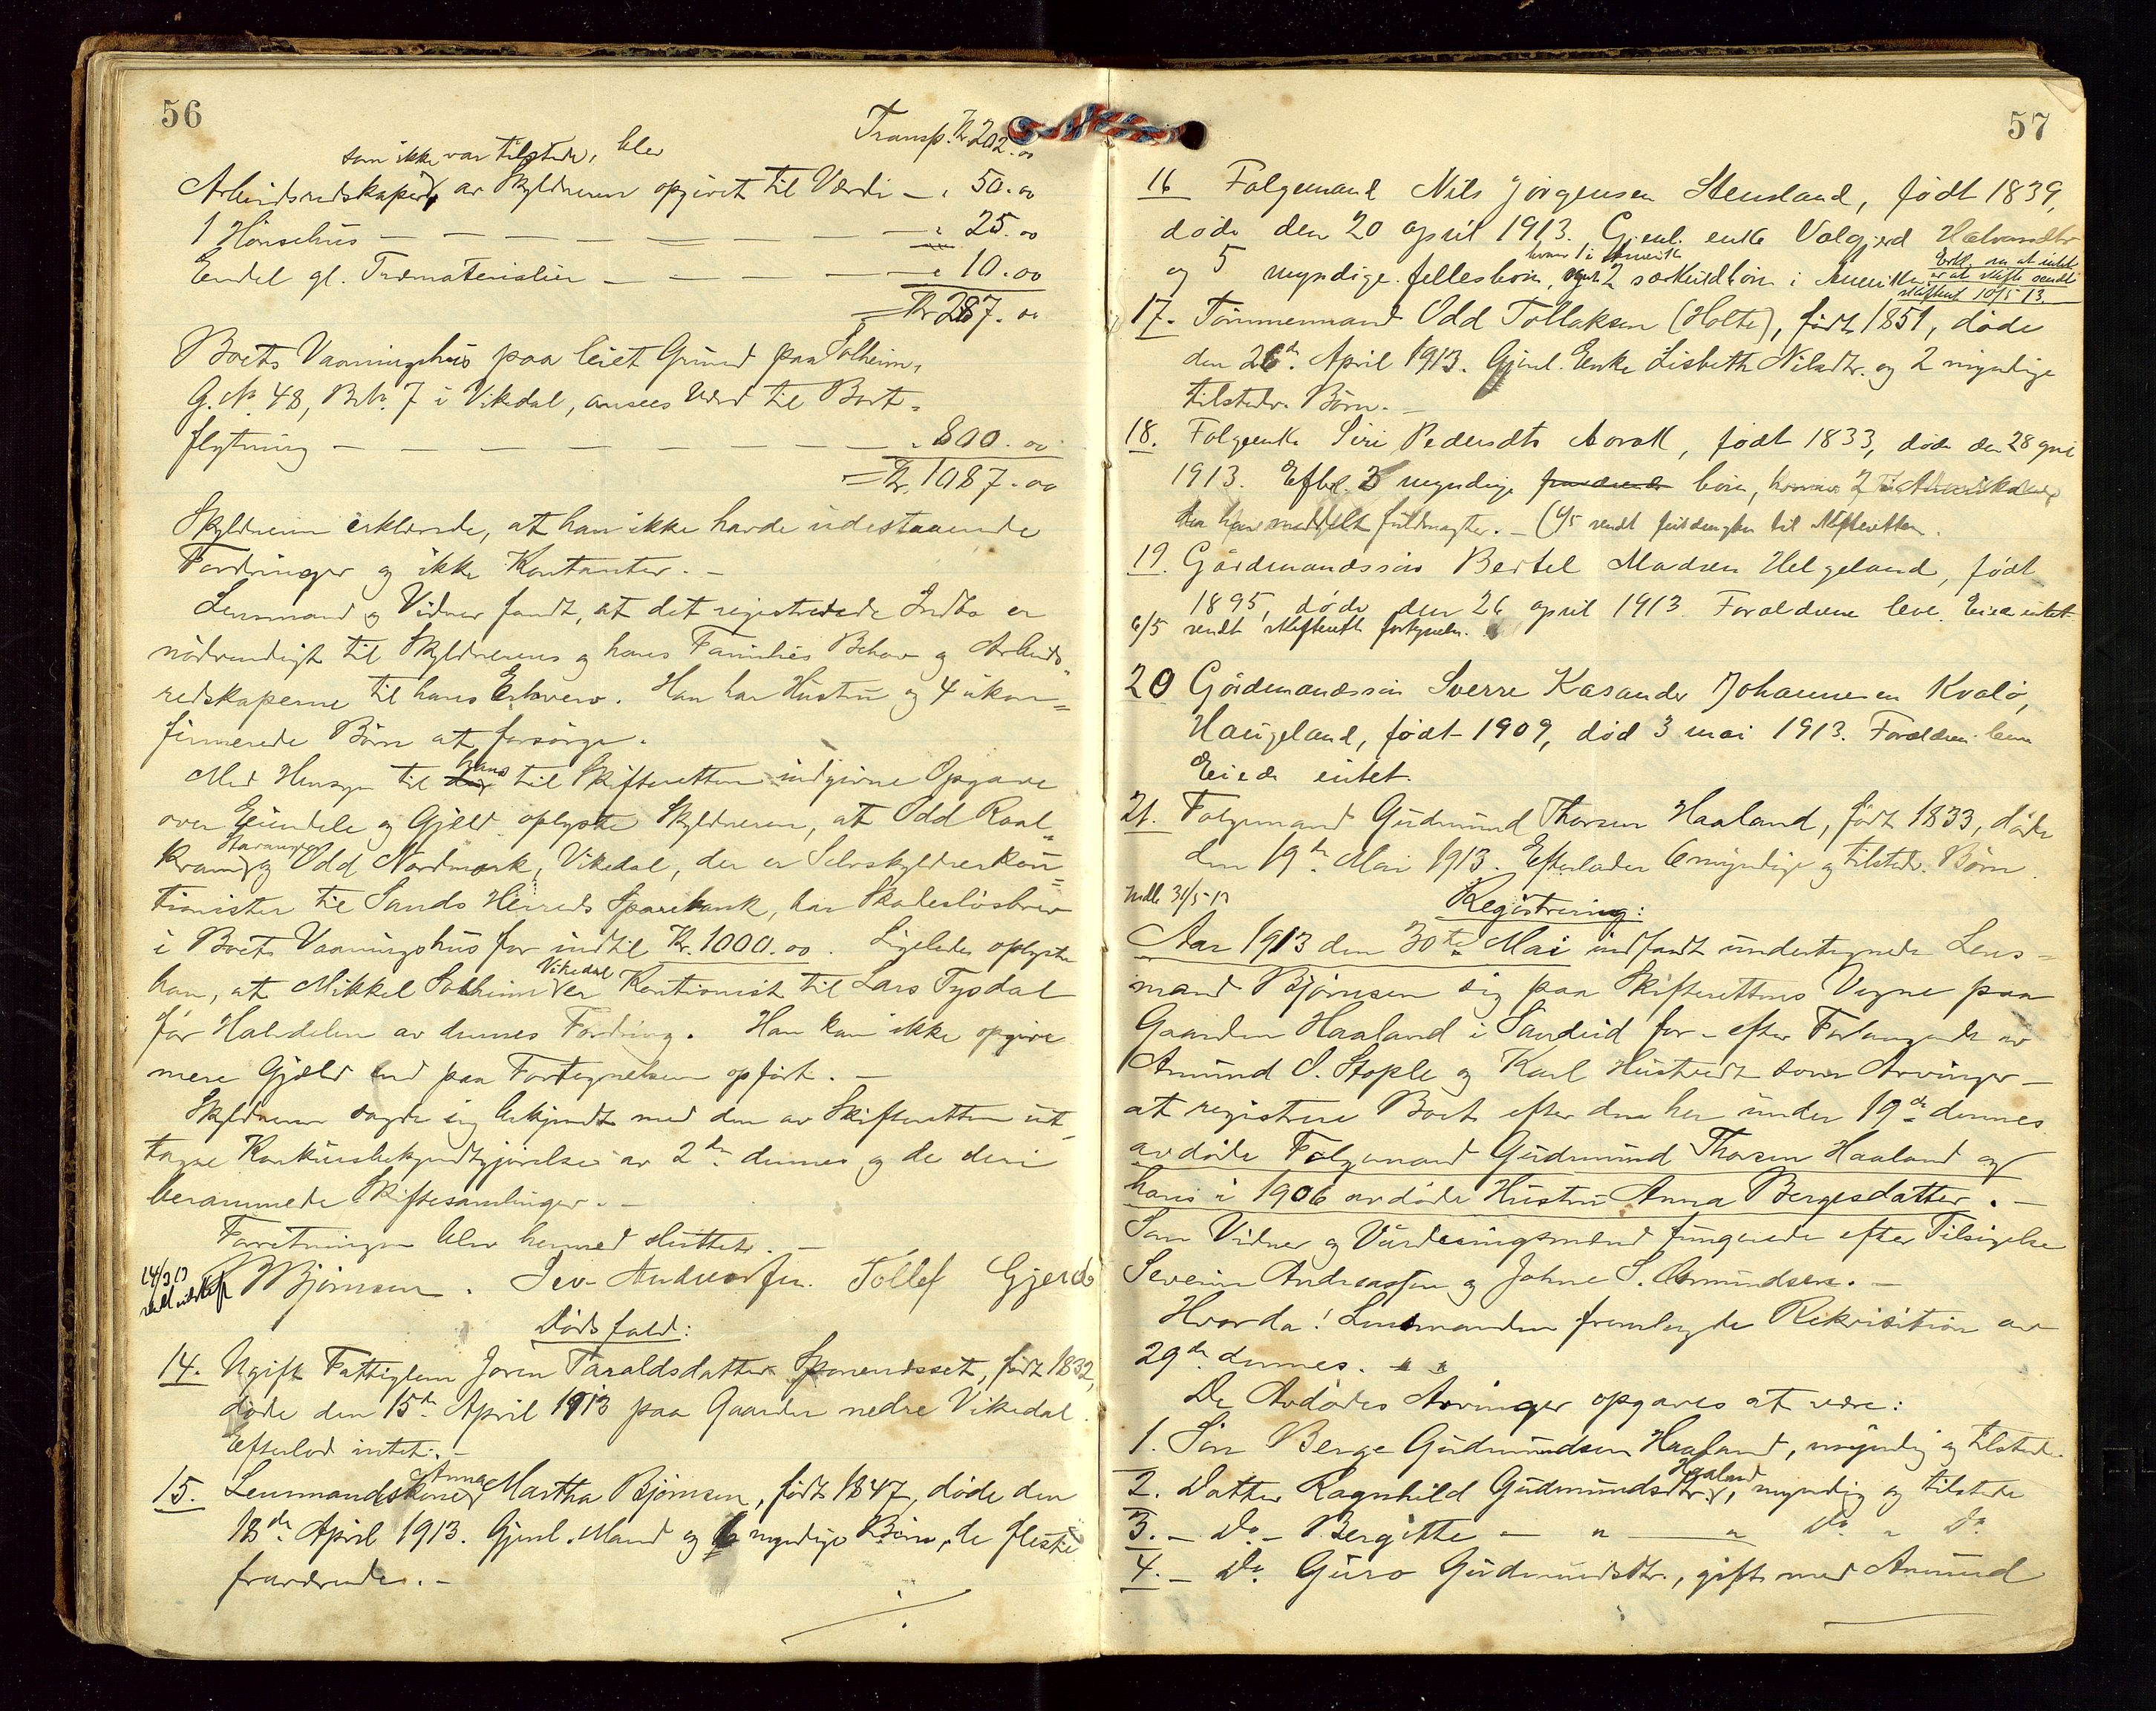 56
Transp. Kr. 202.00
som ikke var tilstede, blev
Arbeidsredskaper, av Skyldneren opgivet til Værdi - " 50.00
1 Hönsehus - - - - - - - " 25.00
Endel gl. Træmaterialier - - - - - " 10.00
= Kr 287.00
Boets Vaaningshus paa leiet Grund paa Solheim,
G.No. 48, B.No. 7 i Vikedal, ansees værd til Bort-
flytning - - - - - - - " 800.00
= Kr. 1087.00
Skyldneren erklærede, at han ikke havde udestaaende
Fordringer og ikke Kontanter. -
Lensmand og Vidner fandt, at det registrerede Indbo er
nödvendigt til Skyldnerens og hans Families Behov og Arbeids-
redskaperne til hans Erhverv. Han har Hustru og 4 ukon-
firmerede Börn at forsörge.
Med Hensyn til hans til Skifteretten indgivne Opgave
over Eiendele og Gjæld oplyste Skyldneren, at Odd Raal-
kram Stavanger og Odd Nordmork, Vikedal, der er Selvskyldnerkau-
tionister til Sands Herreds Sparebank, har Skadeslösbrev
i Boets Vaaningshus for indtil Kr. 1000.00. Ligeledes oplyste
han, at Mikkel Solheim Vikedal er Kautionist til Lars Tysdal
för Halvdelen av dennes Fordring. Han kan ikke opgive
mere Gjæld end paa Fortegnelsen opfört. -
Skyldneren sagde sig bekjendt med den av Skifteretten ut-
tagne Konkursbekjendtgjörelse av 2den dennes og de deri
berammede Skiftesamlinger. -
Forretningen blev hermed sluttet. -
14/3 13
Bjørnsen. Sev. Andreassen. Tollef Gjerde
Dödsfald:
14. Ugift Fattiglem Joren Taraldsdatter , födt 1832,
döde den 15de April 1913 paa Gaarden nedre Vikedal.
Efterlod intet. -
15. Lensmandskone Anna Martha Björnsen, födt 1847, döde den
18de April 1913. Gjenl. Mand og 6 myndige Börn, de fleste
fraværende. -
57
16 Folgemand Nils Jörgensen Stensland, född 1839,
döde den 20 april 1913. Gjenl. enke Valgjerd Halvardsdtr
hvorav 1 i Amerika
og 5 myndige fellesbörn, og 2 særkuldbörn i Amerika.
17. Tömmermand Odd Tollaksen (Holte), födt 1851, döde
den 26de April 1913. Gjenl. Enke Lisbeth Nilsdtr. og 2 myndige
tilstedev. Börn. -
18. Folgeenke Siri Pedersdtr , födt 1833, döde den 28 april
1913. Efterl. 3 myndige börn, hvorav 2 i Amerika
der har meddelt fuldmagter. - sendt fuldmagten til Skifteretten.
19. Gårdmandssön Bertel Madsen Helgeland, födt
1895, döde den 26 april 1913 Forældrene leve. Eiede intet.
6/5 sendt skifteret
20 Gårdmandssön Sverre Kasander Johannesen Kvalö,
Haugeland, födt 1909, död 3 mai 1913. Forældrene leve
Eiede intet.
21. Folgemand Gudmund Thorsen Haaland, födt 1833, döde
den 19de Mai 1913. Efterlader 6 myndige og tilstedev. Börn.
Indb. 31/5-13
Registrering:
Aar 1913 den 30te Mai indfandt undertegnede Lens-
mand Björnsen sig paa Skifterettens Vegne paa
Gaarden Haaland i Sandeid for - efter Forlangende av
Amund S. Stople og Karl Hustvedt som Arvinger -
at registrere Boet efter den her under 19de dennes
avdöde Folgemand Gudmund Thorsen Haaland og
hans i 1906 avdöde Hustru Anna Bergesdatter. -
Som Vidner og Vurderingsmænd fungerede efter Tilsigelse
Severin Andreassen og Johne S. Amundsen. -
Hvorda! Lensmanden fremlagde Rekvisition av
29de dennes.
De Avdödes Arvinger opgaves at være:
1. Sön Berge Gudmundsen Haaland, myndig og tilstede
2. Datter Ragnhild Gudmundsdtr. Haaland, myndig og tilstede
3. - Do - Bergitte - " - " Do " Do
4. - Do Guro Gudmundsdtr., gift med Amund